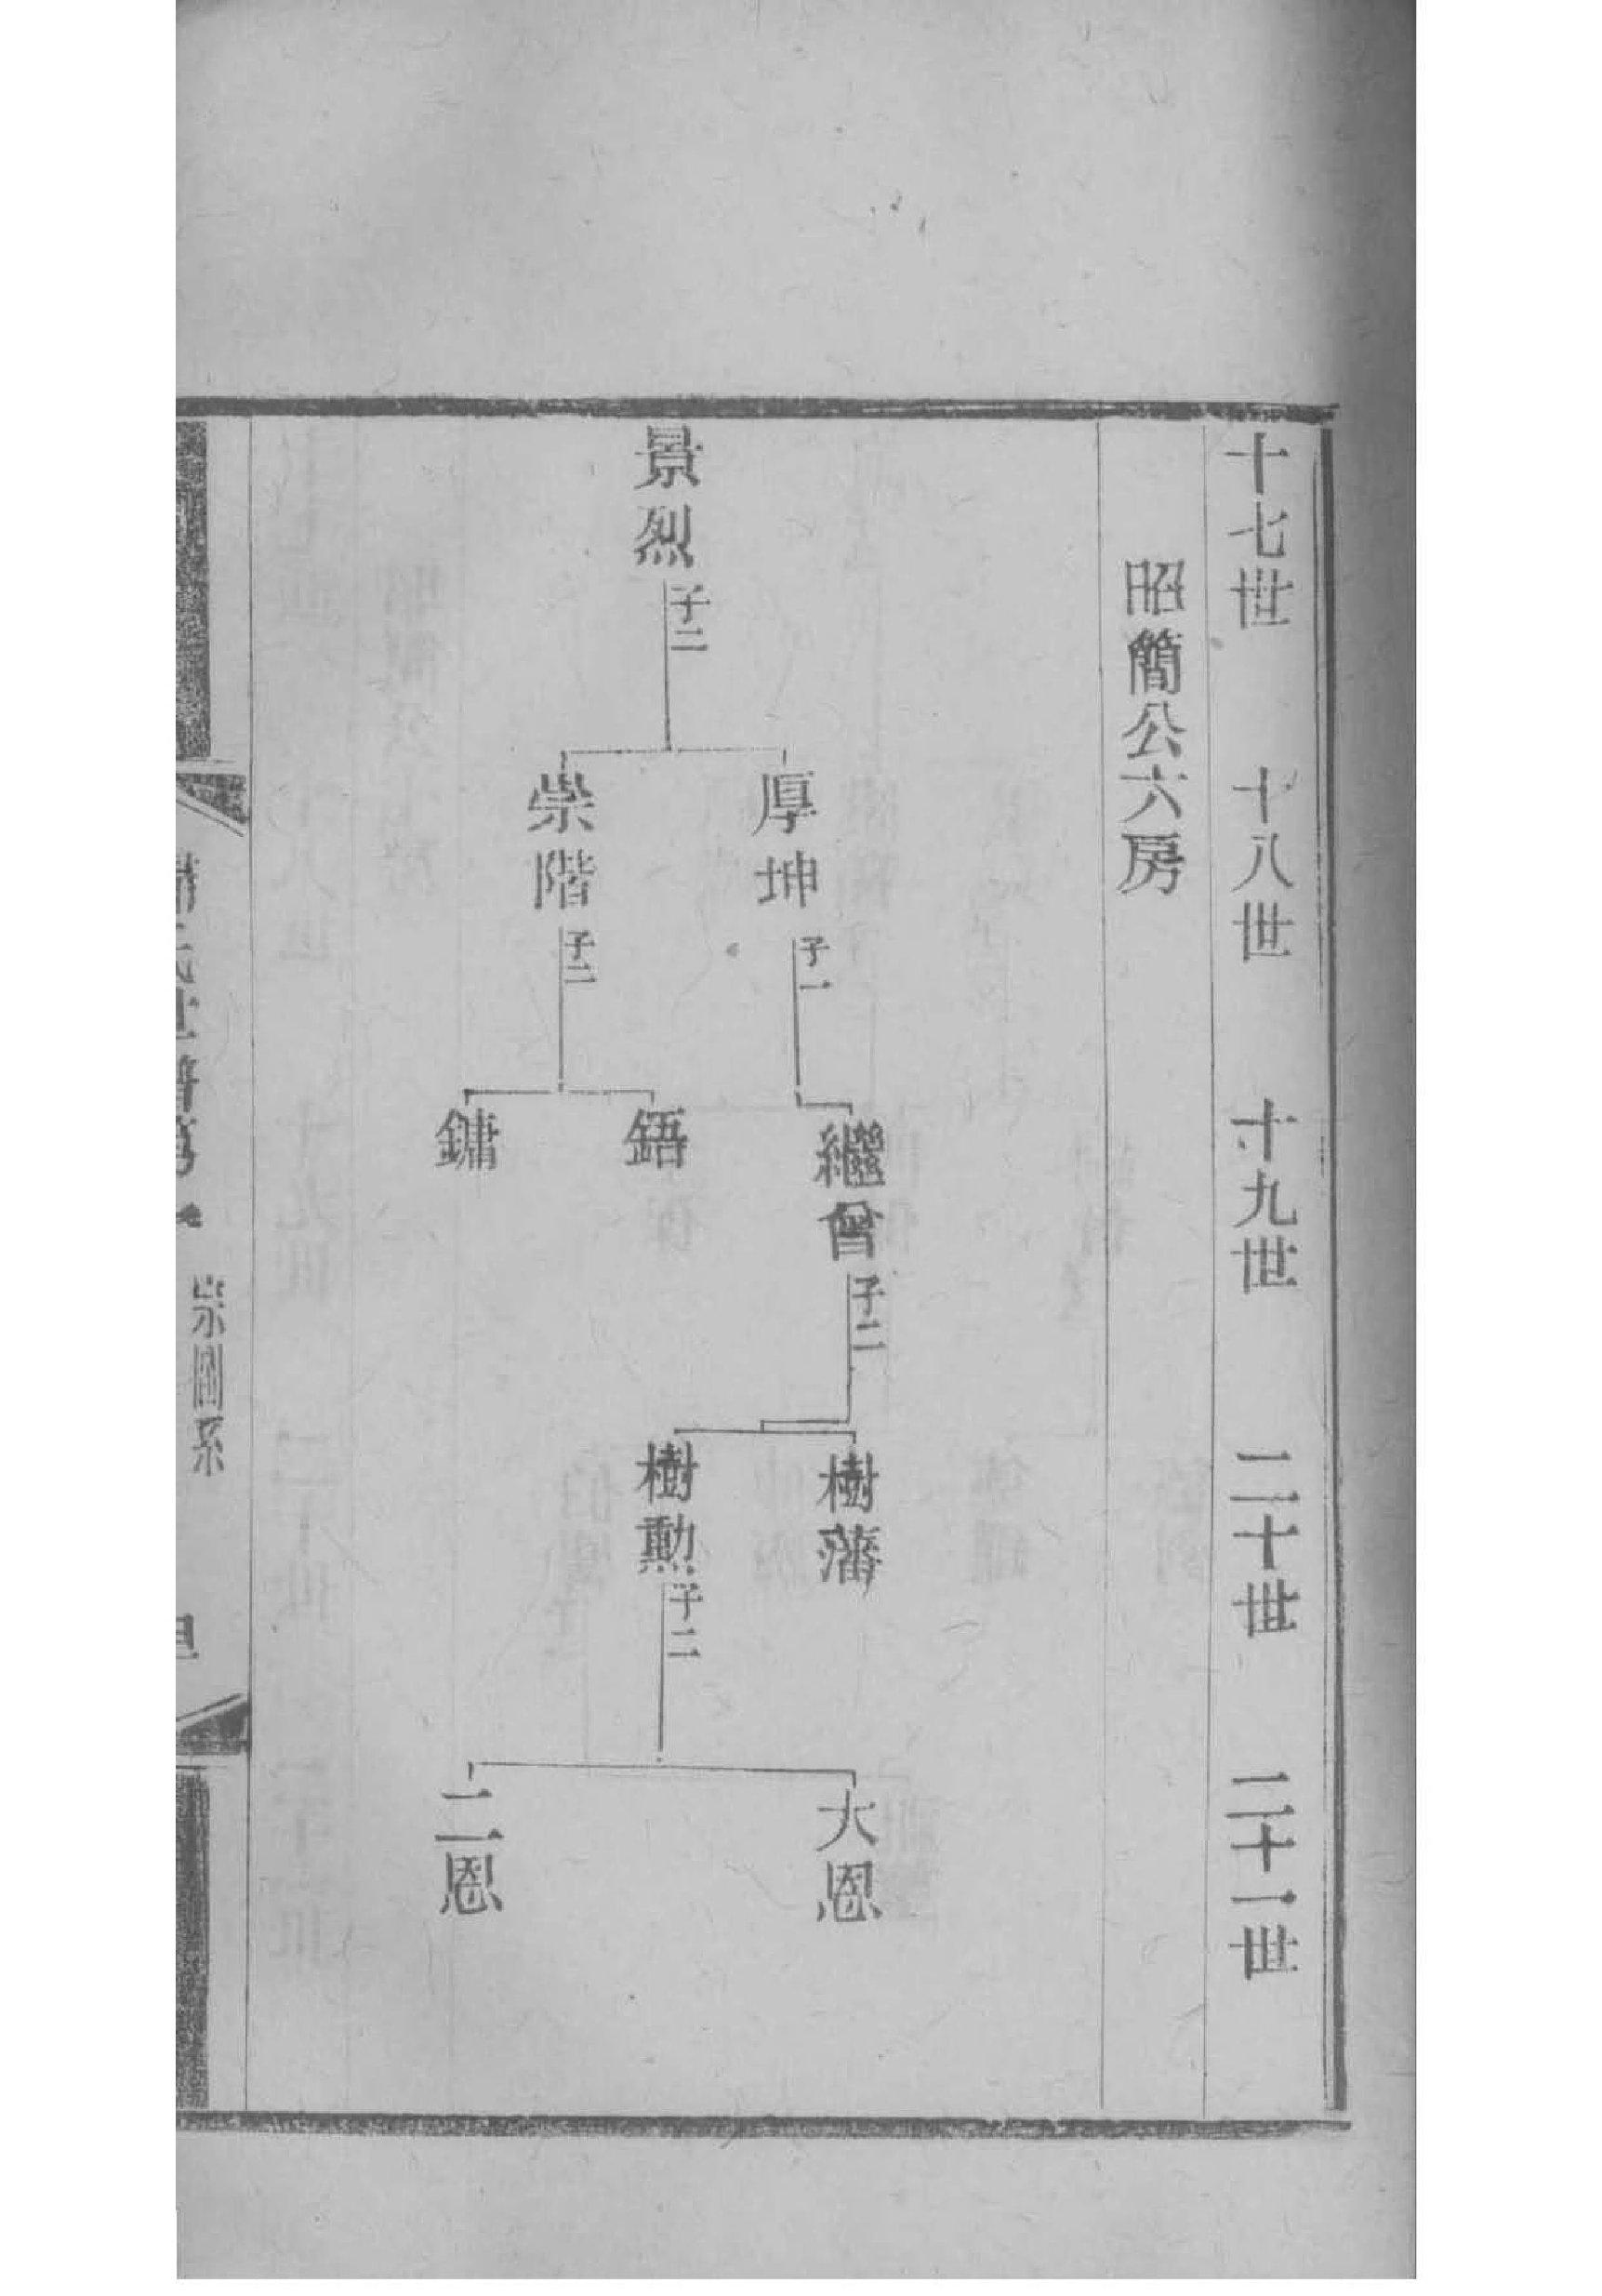 十七世 十八世 十九世 二十世 二十一世
昭簡公六房
景烈 子二
厚坤 子一
崇階 子二
繼曾 子二
鋙
鏞
樹藩
樹勲 子二
大恩
二恩
氏世譜
宗圖系